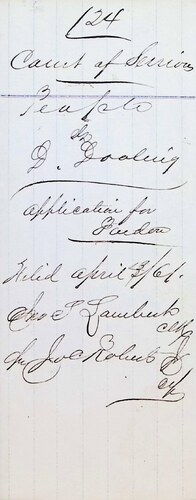 124
Court of Sessions
People
vs
D. Dooling
Application for
Pardon
Filed April 13/61.
Jno T Lamberk
clk
Jno C Robert Jr
clk